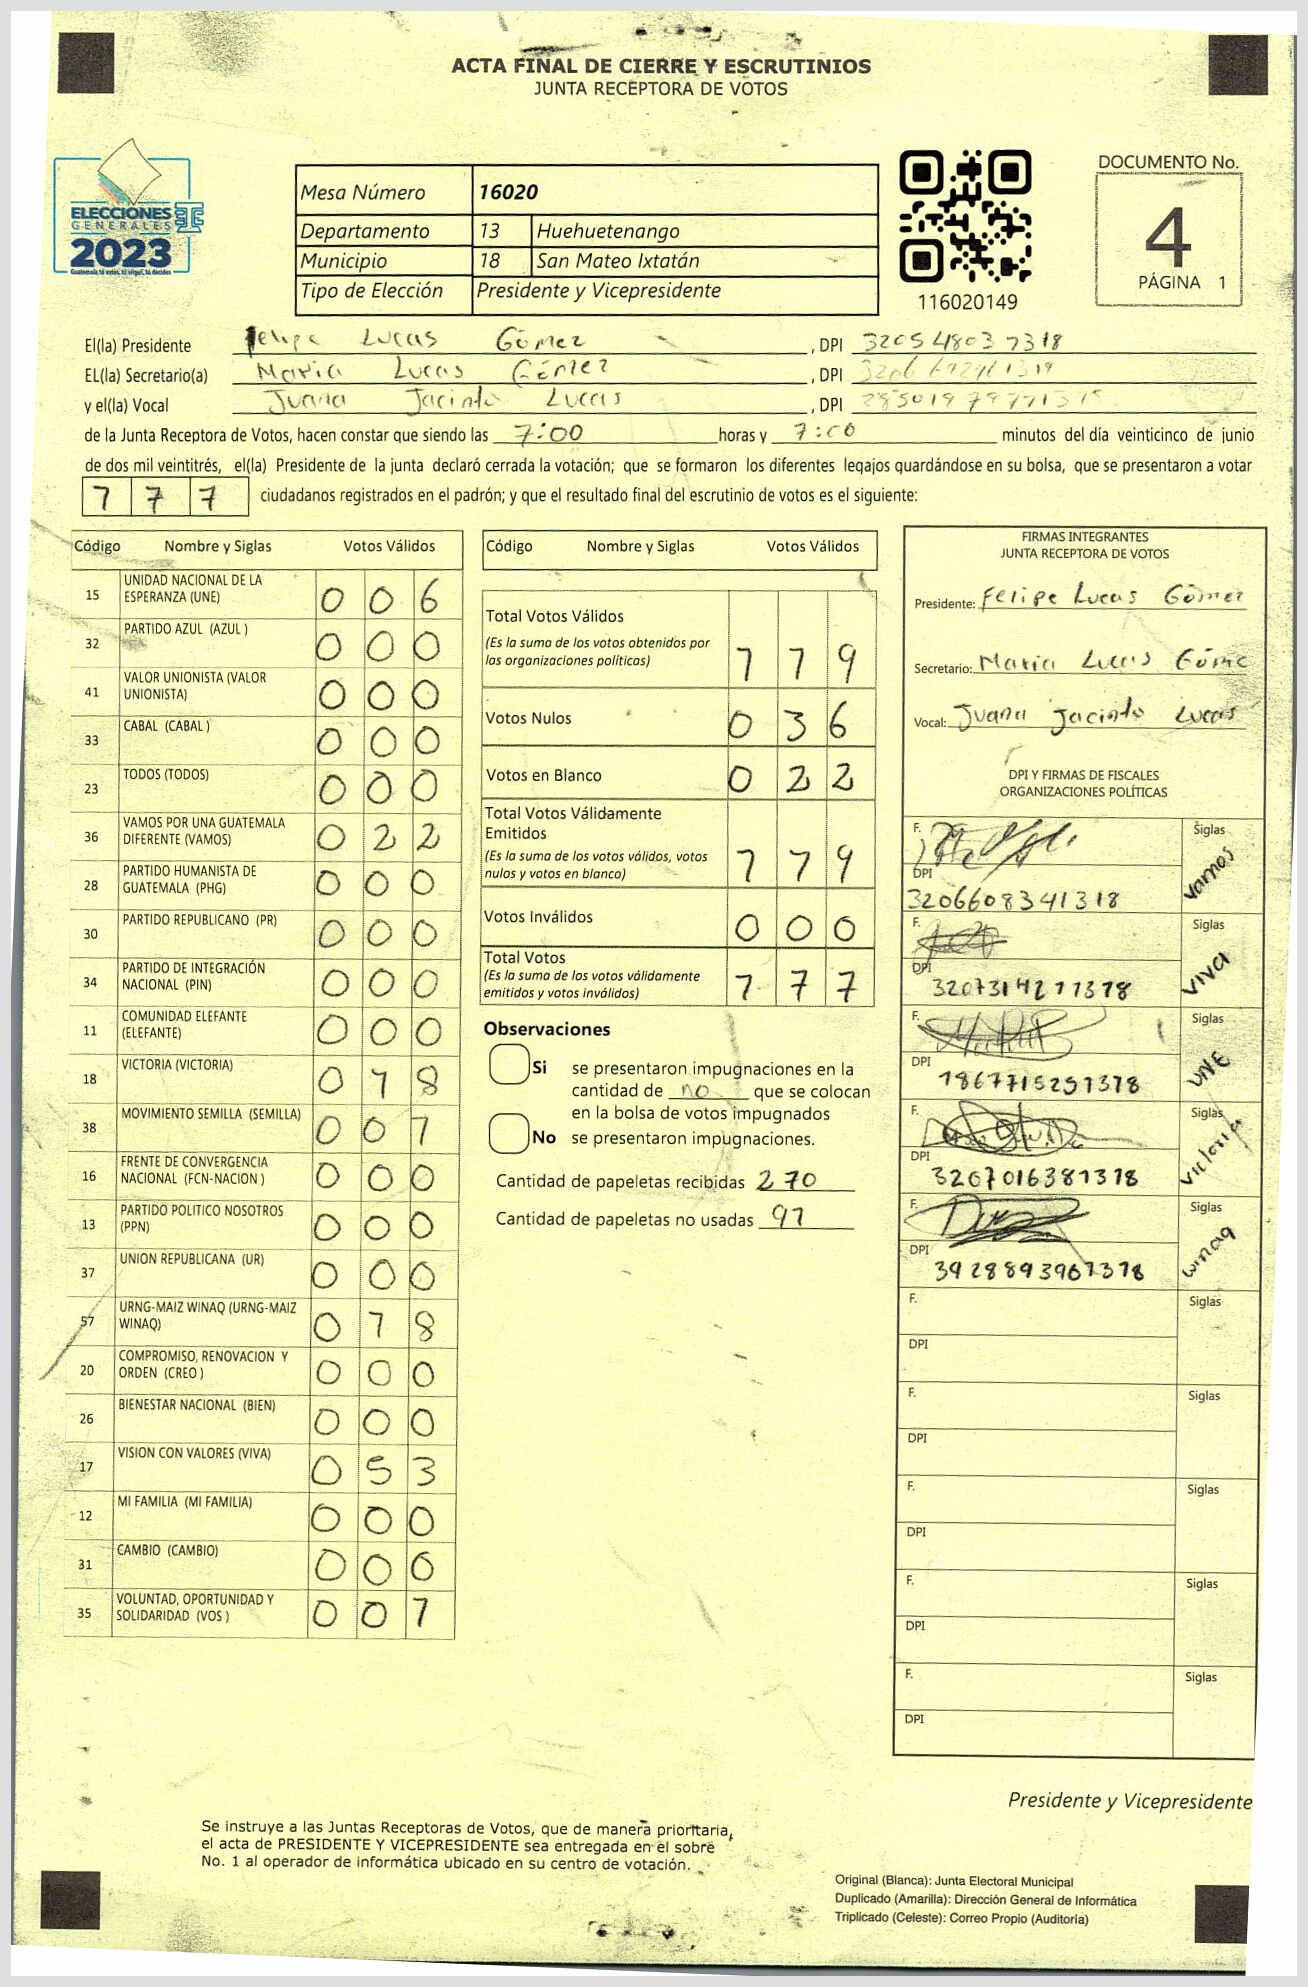 ACTA FINAL DE CIERRE Y ESCRUTINIOS
JUNTA RECEPTORA DE VOTOS
ELECCIONES
GENERALES
2023
Guatemala tú votas, tú eliges, tú decides
Mesa Número 16020
Departamento 13 Huehuetenango
Municipio 18 San Mateo Ixtatán
Tipo de Elección Presidente y Vicepresidente
116020149
DOCUMENTO No.
4
PÁGINA 1
El(la) Presidente Felipe Lucas Gómez , DPI 3205 4803 7318
EL(la) Secretario(a) Maria Lucas Gómez , DPI
y el(la) Vocal Juana Jacinto Lucas , DPI
de la Junta Receptora de Votos, hacen constar que siendo las 7:00 horas y 7:00 minutos del día veinticinco de junio
de dos mil veintitrés, el(la) Presidente de la junta declaró cerrada la votación; que se formaron los diferentes legajos guardándose en su bolsa, que se presentaron a votar
7 7 7 ciudadanos registrados en el padrón; y que el resultado final del escrutinio de votos es el siguiente:
Código Nombre y Siglas Votos Válidos
15 UNIDAD NACIONAL DE LA ESPERANZA (UNE) 0 0 6
32 PARTIDO AZUL (AZUL ) 0 0 0
41 VALOR UNIONISTA (VALOR UNIONISTA) 0 0 0
33 CABAL (CABAL ) 0 0 0
23 TODOS (TODOS) 0 0 0
36 VAMOS POR UNA GUATEMALA DIFERENTE (VAMOS) 0 2 2
28 PARTIDO HUMANISTA DE GUATEMALA (PHG) 0 0 0
30 PARTIDO REPUBLICANO (PR) 0 0 0
34 PARTIDO DE INTEGRACIÓN NACIONAL (PIN) 0 0 0
11 COMUNIDAD ELEFANTE (ELEFANTE) 0 0 0
18 VICTORIA (VICTORIA) 0 7 8
38 MOVIMIENTO SEMILLA (SEMILLA) 0 0 7
16 FRENTE DE CONVERGENCIA NACIONAL (FCN-NACION ) 0 0 0
13 PARTIDO POLITICO NOSOTROS (PPN) 0 0 0
37 UNION REPUBLICANA (UR) 0 0 0
57 URNG-MAIZ WINAQ (URNG-MAIZ WINAQ) 0 7 8
20 COMPROMISO, RENOVACION Y ORDEN (CREO ) 0 0 0
26 BIENESTAR NACIONAL (BIEN) 0 0 0
17 VISION CON VALORES (VIVA) 0 5 3
12 MI FAMILIA (MI FAMILIA) 0 0 0
31 CAMBIO (CAMBIO) 0 0 6
35 VOLUNTAD, OPORTUNIDAD Y SOLIDARIDAD (VOS ) 0 0 7
Código Nombre y Siglas Votos Válidos
Total Votos Válidos 7 7 9
(Es la suma de los votos obtenidos por
las organizaciones políticas)
Votos Nulos 0 3 6
Votos en Blanco 0 2 2
Total Votos Válidamente
Emitidos 7 7 9
(Es la suma de los votos válidos, votos
nulos y votos en blanco)
Votos Inválidos 0 0 0
Total Votos 7 7 7
(Es la suma de los votos válidamente
emitidos y votos inválidos)
Observaciones
Si se presentaron impugnaciones en la
cantidad de no que se colocan
en la bolsa de votos impugnados
No se presentaron impugnaciones.
Cantidad de papeletas recibidas 270
Cantidad de papeletas no usadas 97
FIRMAS INTEGRANTES
JUNTA RECEPTORA DE VOTOS
Presidente: Felipe Lucas Gómez
Secretario: Maria Lucas Góme
Vocal: Juana Jacinto Lucas
DPI Y FIRMAS DE FISCALES
ORGANIZACIONES POLÍTICAS
F. Siglas Vamos
DPI 3206608341318
F. Siglas VIVA
DPI 3207314271318
F. Siglas UNE
DPI 1867715251318
F. Siglas Victoria
DPI 3207016381318
F. Siglas winaq
DPI 3928893961318
F. Siglas
DPI
F. Siglas
DPI
F. Siglas
DPI
F. Siglas
DPI
F. Siglas
DPI
Presidente y Vicepresidente
Se instruye a las Juntas Receptoras de Votos, que de manera prioritaria,
el acta de PRESIDENTE Y VICEPRESIDENTE sea entregada en el sobre
No. 1 al operador de informática ubicado en su centro de votación.
Original (Blanca): Junta Electoral Municipal
Duplicado (Amarilla): Dirección General de Informática
Triplicado (Celeste): Correo Propio (Auditoría)